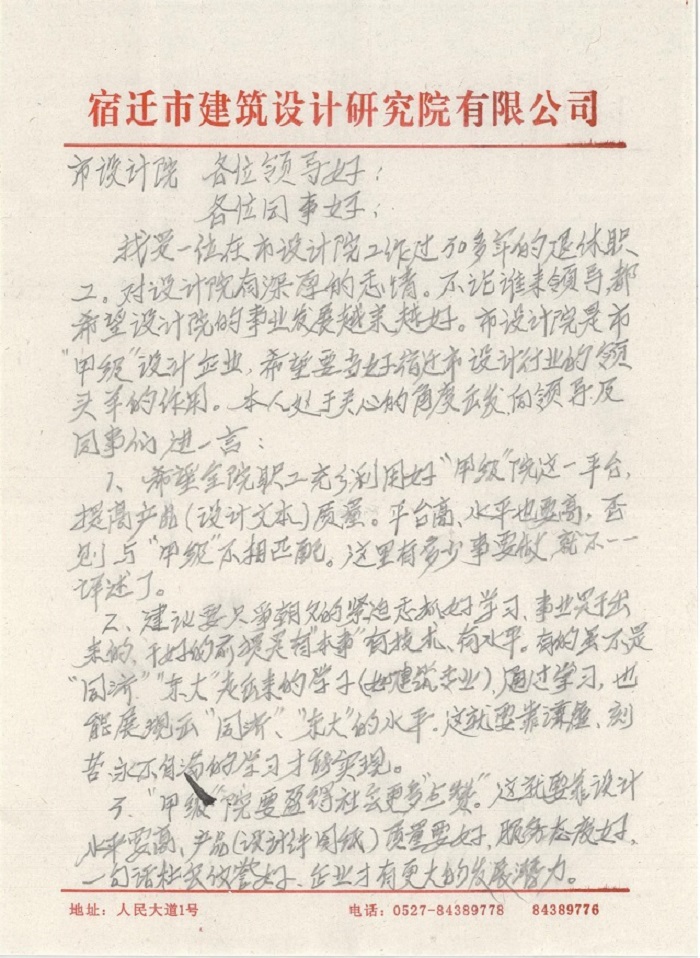 宿迁市建筑设计研究院有限公司
市设计院 各位领导好；
各位同事好；
我是一位在市设计院工作过30多年的退休职
工。对设计院有深厚的感情。不论谁来领导，都
希望设计院的事业发展越来越好。市设计院是市
“甲级”设计企业，希望要当好宿迁市设计行业的领
头羊的作用。本人处于关心的角度出发向领导及
同事们进一言：
1、希望全院职工充分利用好“甲级”院这一平台，
提高产品（设计文本）质量。平台高、水平也要高，否
则与“甲级”不相匹配。这里有多少事要做，就不一一
详述了。
2、建议要只争朝夕的紧迫感抓好学习、事业是干出
来的，干好的前提是有“本事”有技术、有水平。有的虽不是
“同济”“东大”走出来的学子（如建筑专业），通过学习，也
能展现出“同济”、“东大”的水平，这就要靠谦虚、刻
苦、永不自满的学习才能实现。
3、“甲级”院要赢得社会更多“点赞”。这就要靠设计
水平要高、产品（设计图纸）质量要好、服务态度好，
一句话社会信誉好、企业才有更大的发展潜力。
地址：人民大道1号 电话：0527-84389778 84389776